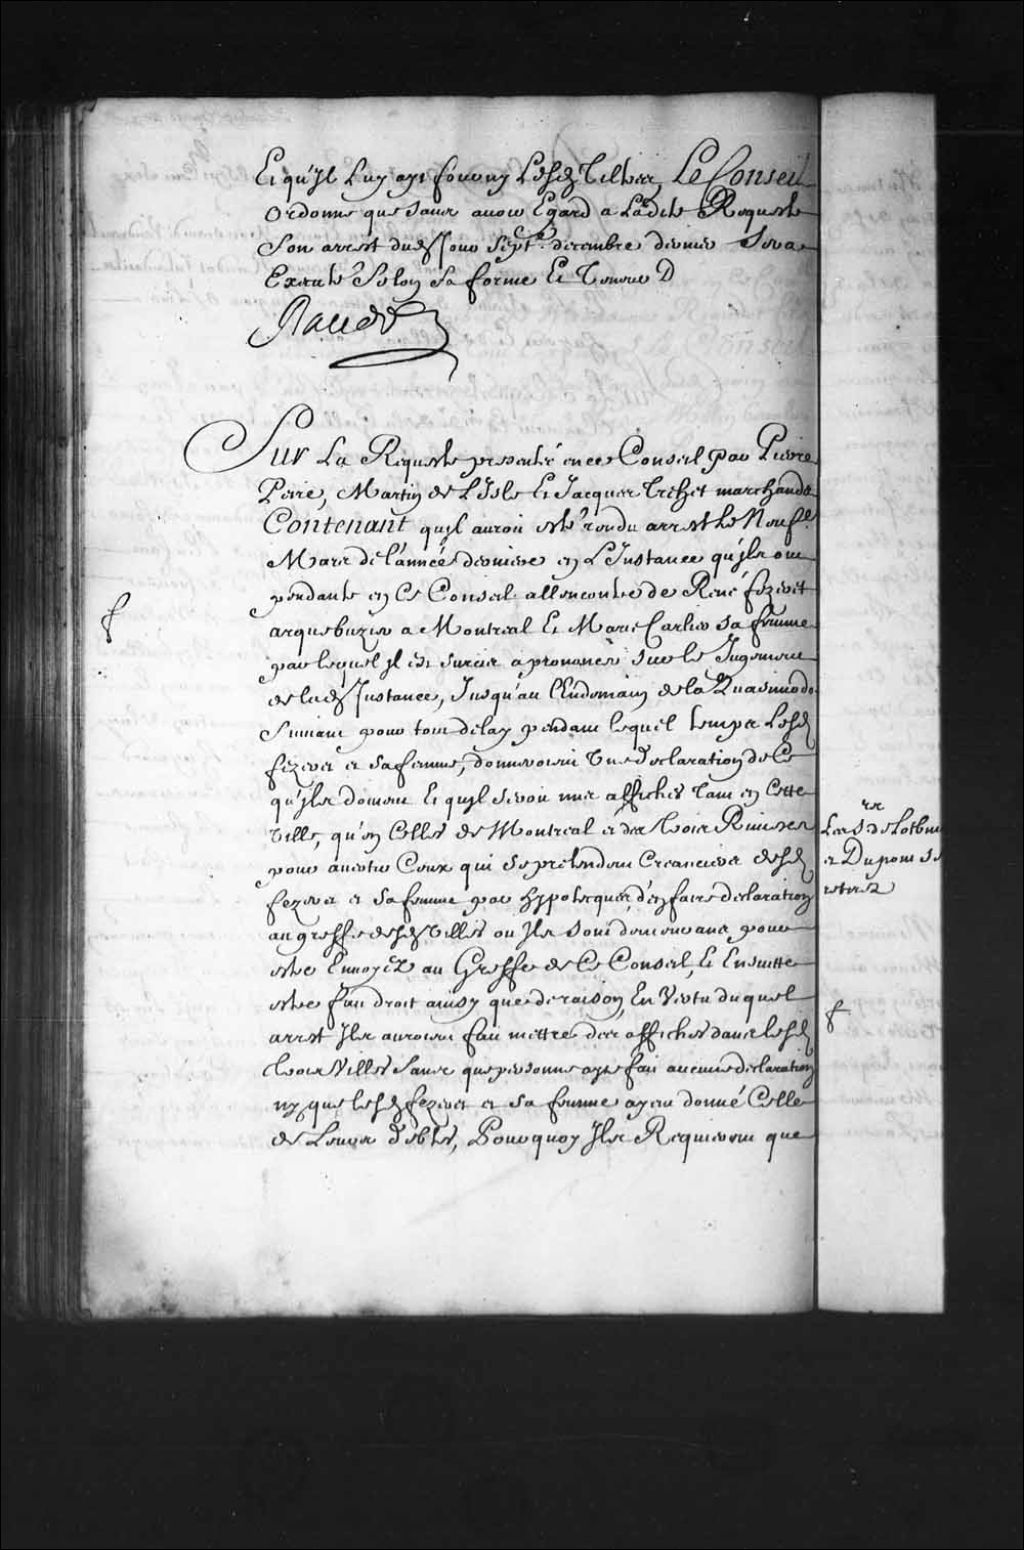 Et qu'Jl Luy ayt fourny Lesd. Tiltres, Le Conseil
Ordonne que sans avoir Egard a Ladite Requeste
Son arrest dud. jour Septe. decembre dernier Sera
Executé Selon sa forme Et Teneur D
Raudot
Sur La Requeste presentée en ce Conseil par Pierre
Peire, Martin de L'Isle Et Jacques Trehet marchands
Contenant quJl auroit esté rendu arrest le Neufe.
Mars de l'année derniere en L'Instance qu'Jls ont
pendante en Ce Conseil allencontre de René fezeret
arquebuzier a Montreal Et Marie Carlier sa femme
par lequel Jl est surcis a prononcer sur le Jugement
de lad. Instance, Jusqu'au lEndomain de la Quasimodo
Suivant pour tout delay pendant lequel temps Lesd.
fezeret et sa femme, donneroient Une declaration de Ce
qu'Jls doivent Et quJl seroit mis affiches Tant en Cette
Ville, qu'en Celles de Montreal et des trois Rivieres
pour avertir Ceux qui se pretendent Creanciers desd.
fezeret et sa femme par hypoteques, d'en faire declaration
au greffe desd. Villes ou Jls sont demeurans pour
estre Envoyez au Greffe de Ce Conseil, Et Ensuitte
estre fait droit ainsy que de raison, En Vertu duquel
arrest Jls auroient fait mettre des affiches dans lesd.
trois Villes sans que personne ayt fait aucune declaration
ny que lesd. fezeret et sa femme ayent donné Celle
de Leurs debtes, Pourquoy Jls Requierent que
rs
Les S. de Lotbini
et Dupont se
retirez